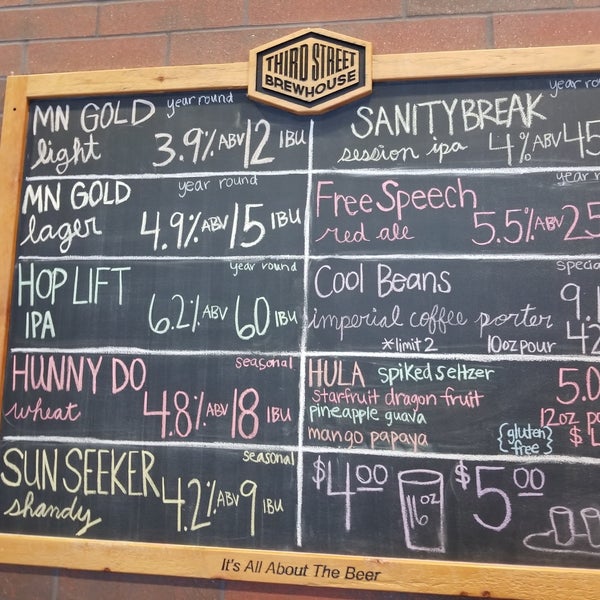 THIRD STREET
BREWHOUSE
MN GOLD year round
light 3.9% ABV 12 IBU
MN GOLD year round
lager 4.9% ABV 15 IBU
HOP LIFT year round
IPA 6.2% ABV 60 IBU
HUNNY DO seasonal
wheat 4.8% ABV 18 IBU
SUN SEEKER seasonal
shandy 4.2% ABV 9 IBU
year ro
SANITY BREAK
session ipa 4% ABV 45
year r
Free Speech
red ale 5.5% ABV 25
Cool Beans specia
9.1
imperial coffee porter
*limit 2 10oz pour 42
HULA spiked seltzer
starfruit dragon fruit 5.0
pineapple guava 12oz po
mango papaya {gluten free} $
$4.00 16oz $5.00
It's All About The Beer